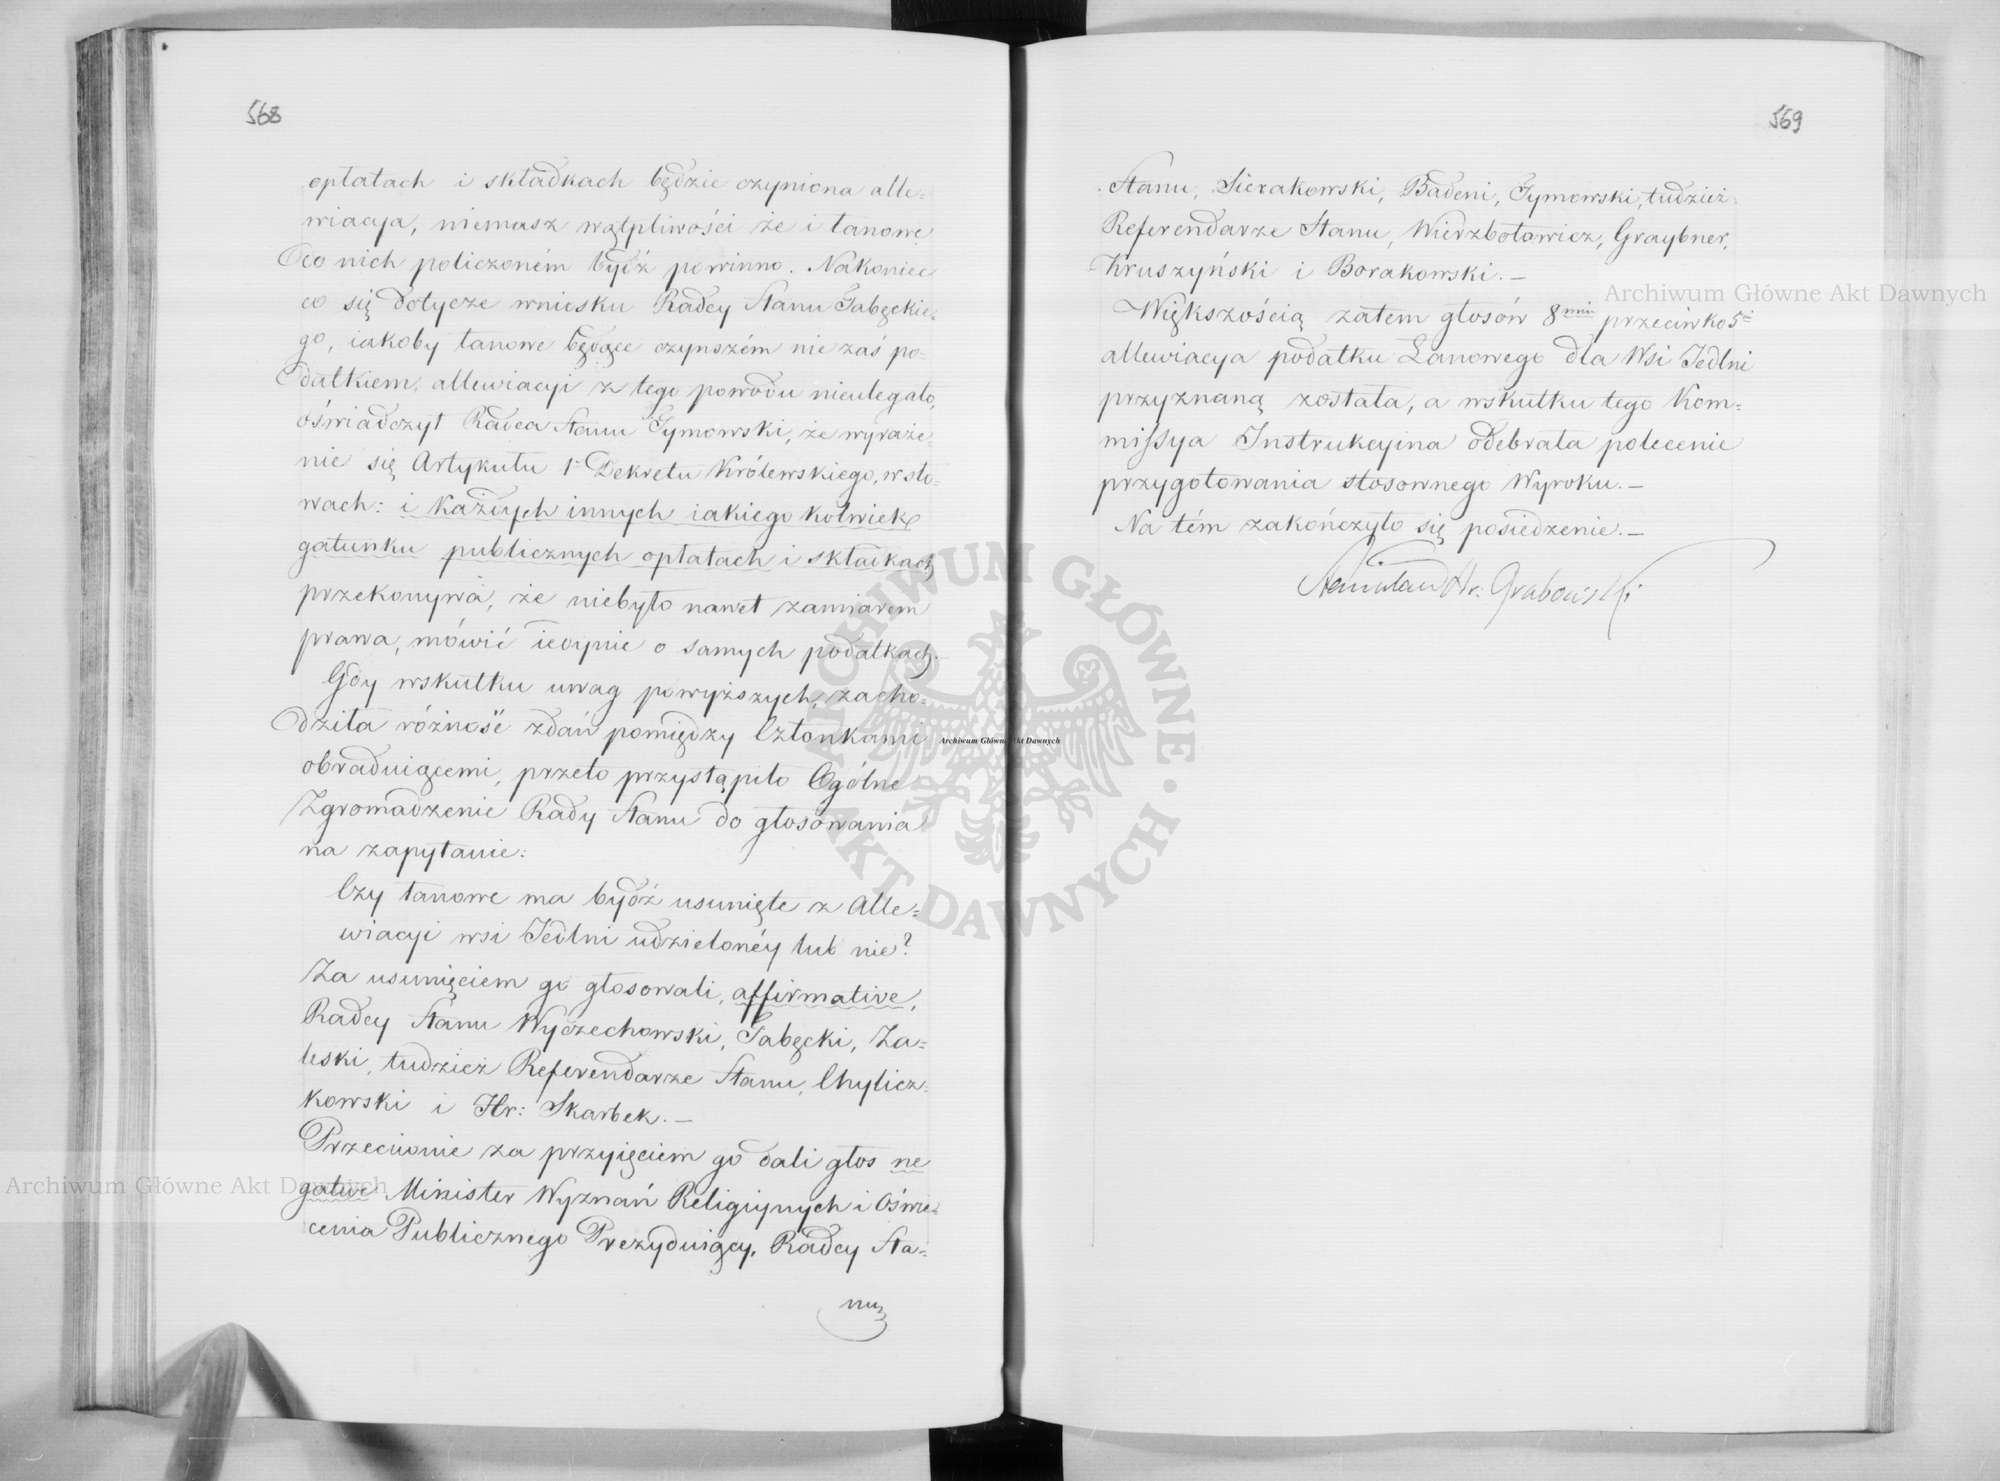 568
opłatach i składkach będzie czyniona alle=
wiacya, niemasz wątpliwości że i łanowe
do nich policzoném bydź powinno. Nakoniec
co się dotycze wniosku Radcy Stanu Tabęckie=
go, iakoby łanowe będące czynszém nie zaś po=
datkiem, allewiacyi z tego powodu nieulegało,
oświadczył Radca Stanu Tymowski, że wyraże=
nie się Artykułu 1° Dekretu Królewskiego, w sło=
wach: i każdych innych iakiego kolwiek
gatunku publicznych opłatach i składkach
przekonywa, że niebyło nawet zamiarem
prawa, mówić iedynie o samych podatkach.
Gdy wskutku uwag powyższych, zacho=
dziła różność zdań pomiędzy Członkami
obraduiącemi, przeto przystąpiło Ogólne
Zgromadzenie Rady Stanu do głosowania
na zapytanie:
Czy łanowe ma bydź usunięte z Alle=
wiacyi wsi Jedlni udzielonéy lub nie?
Za usunięciem go głosowali, affirmative,
Radcy Stanu Wyczechowski, Tabęcki, Za=
leski, tudzież Referendarze Stanu, Chylicz=
kowski i Hr: Skarbek.—
Przeciwnie za przyięciem go dali głos ne
gative Minister Wyznań Religiynych i Oświe=
cenia Publicznego Prezyduiący, Radcy Sta=
nu
569
Stanu, Sierakowski, Badeni, Tymowski, tudzież
Referendarze Stanu, Wierzbołowicz, Graybner,
Kruszyński i Borakowski.—
Większością zatem głosów 8miu przeciwko 5i
allewiacya podatku Łanowego dla Wsi Jedlni
przyznaną została, a wskutku tego Kom=
missya Instrukcyina odebrała polecenie
przygotowania stosownego Wyroku.—
Na tém zakończyło się posiedzenie.—
Stanisław Hr: Grabowski
ARCHIWUM GŁÓWNE AKT DAWNYCH
Archiwum Główne Akt Dawnych
Archiwum Główne Akt Dawnych
Archiwum Główne Akt Dawnych